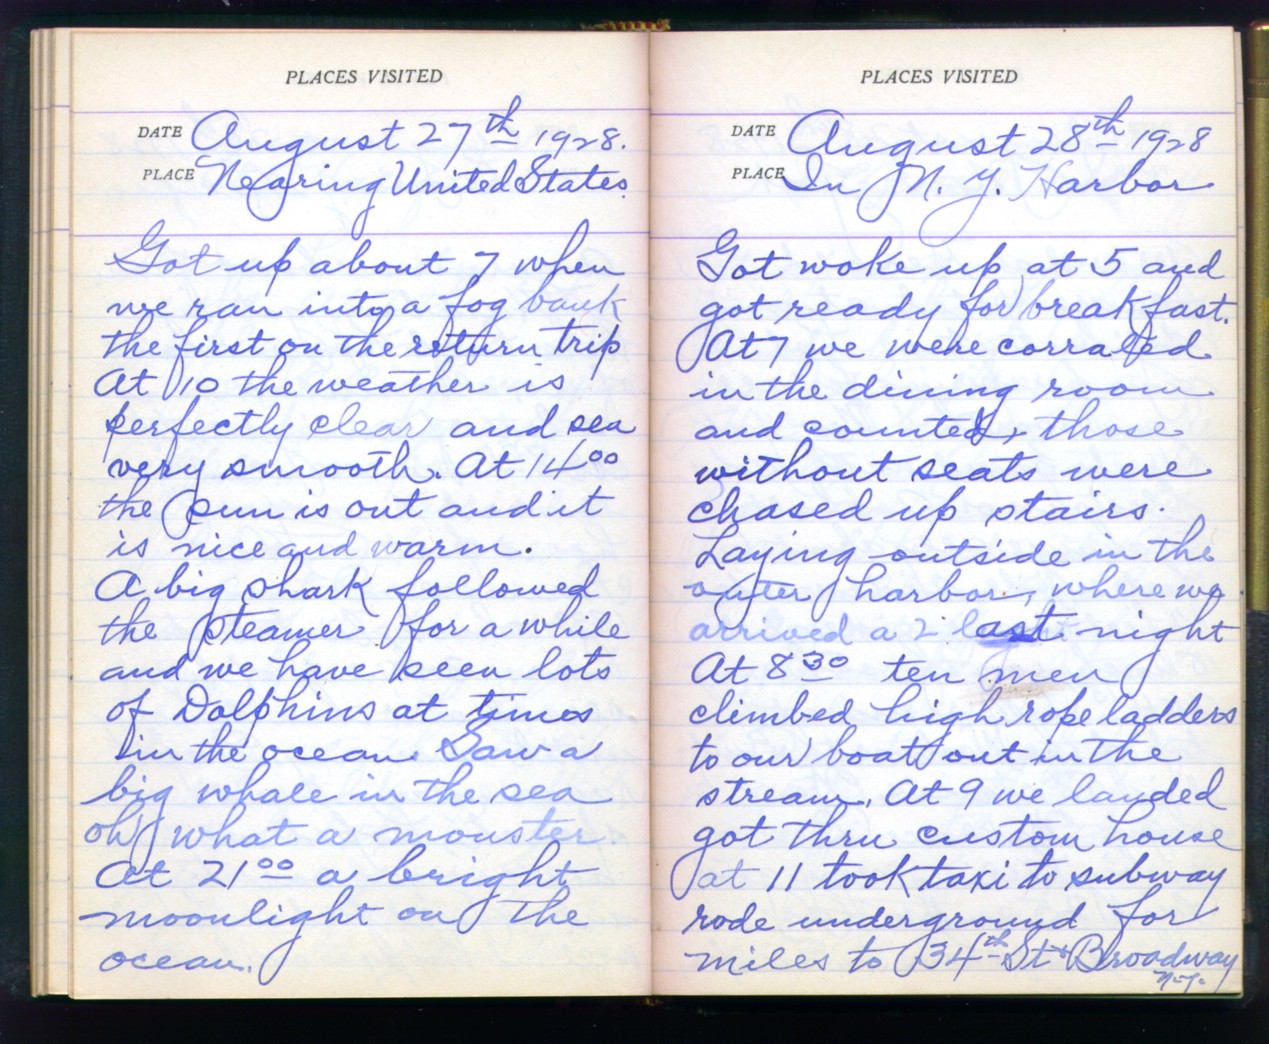 PLACES VISITED
DATE August 27th 1928.
PLACE Nearing United States.
Got up about 7 when
we ran into a fog bank
the first on the return trip
At 10 the weather is
perfectly clear and sea
very smooth. At 14⁰⁰
the sun is out and it
is nice and warm.
A big shark followed
the steamer for a while
and we have seen lots
of Dolphins at times
in the ocean. Saw a
big whale in the sea
oh what a monster.
At 21⁰⁰ a bright
moonlight on the
ocean.
PLACES VISITED
DATE August 28th 1928
PLACE In N. Y. Harbor
Got woke up at 5 and
got ready for breakfast.
At 7 we were corraled
in the dining room
and counted, those
without seats were
chased up stairs.
Laying outside in the
outer harbor, where we
arrived a 2 last night
At 8³⁰ ten men
climbed high rope ladders
to our boat out in the
stream. At 9 we landed
got thru custom house
at 11 took taxi to subway
rode underground for
miles to 34th St & Broadway
N.Y.